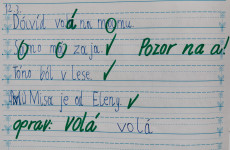 12.3.
Dávid volá na mamu.
Nino má zaja Pozor na a!
Tóno ból v Lese.
Misa je od Eleny.
oprav: volá volá